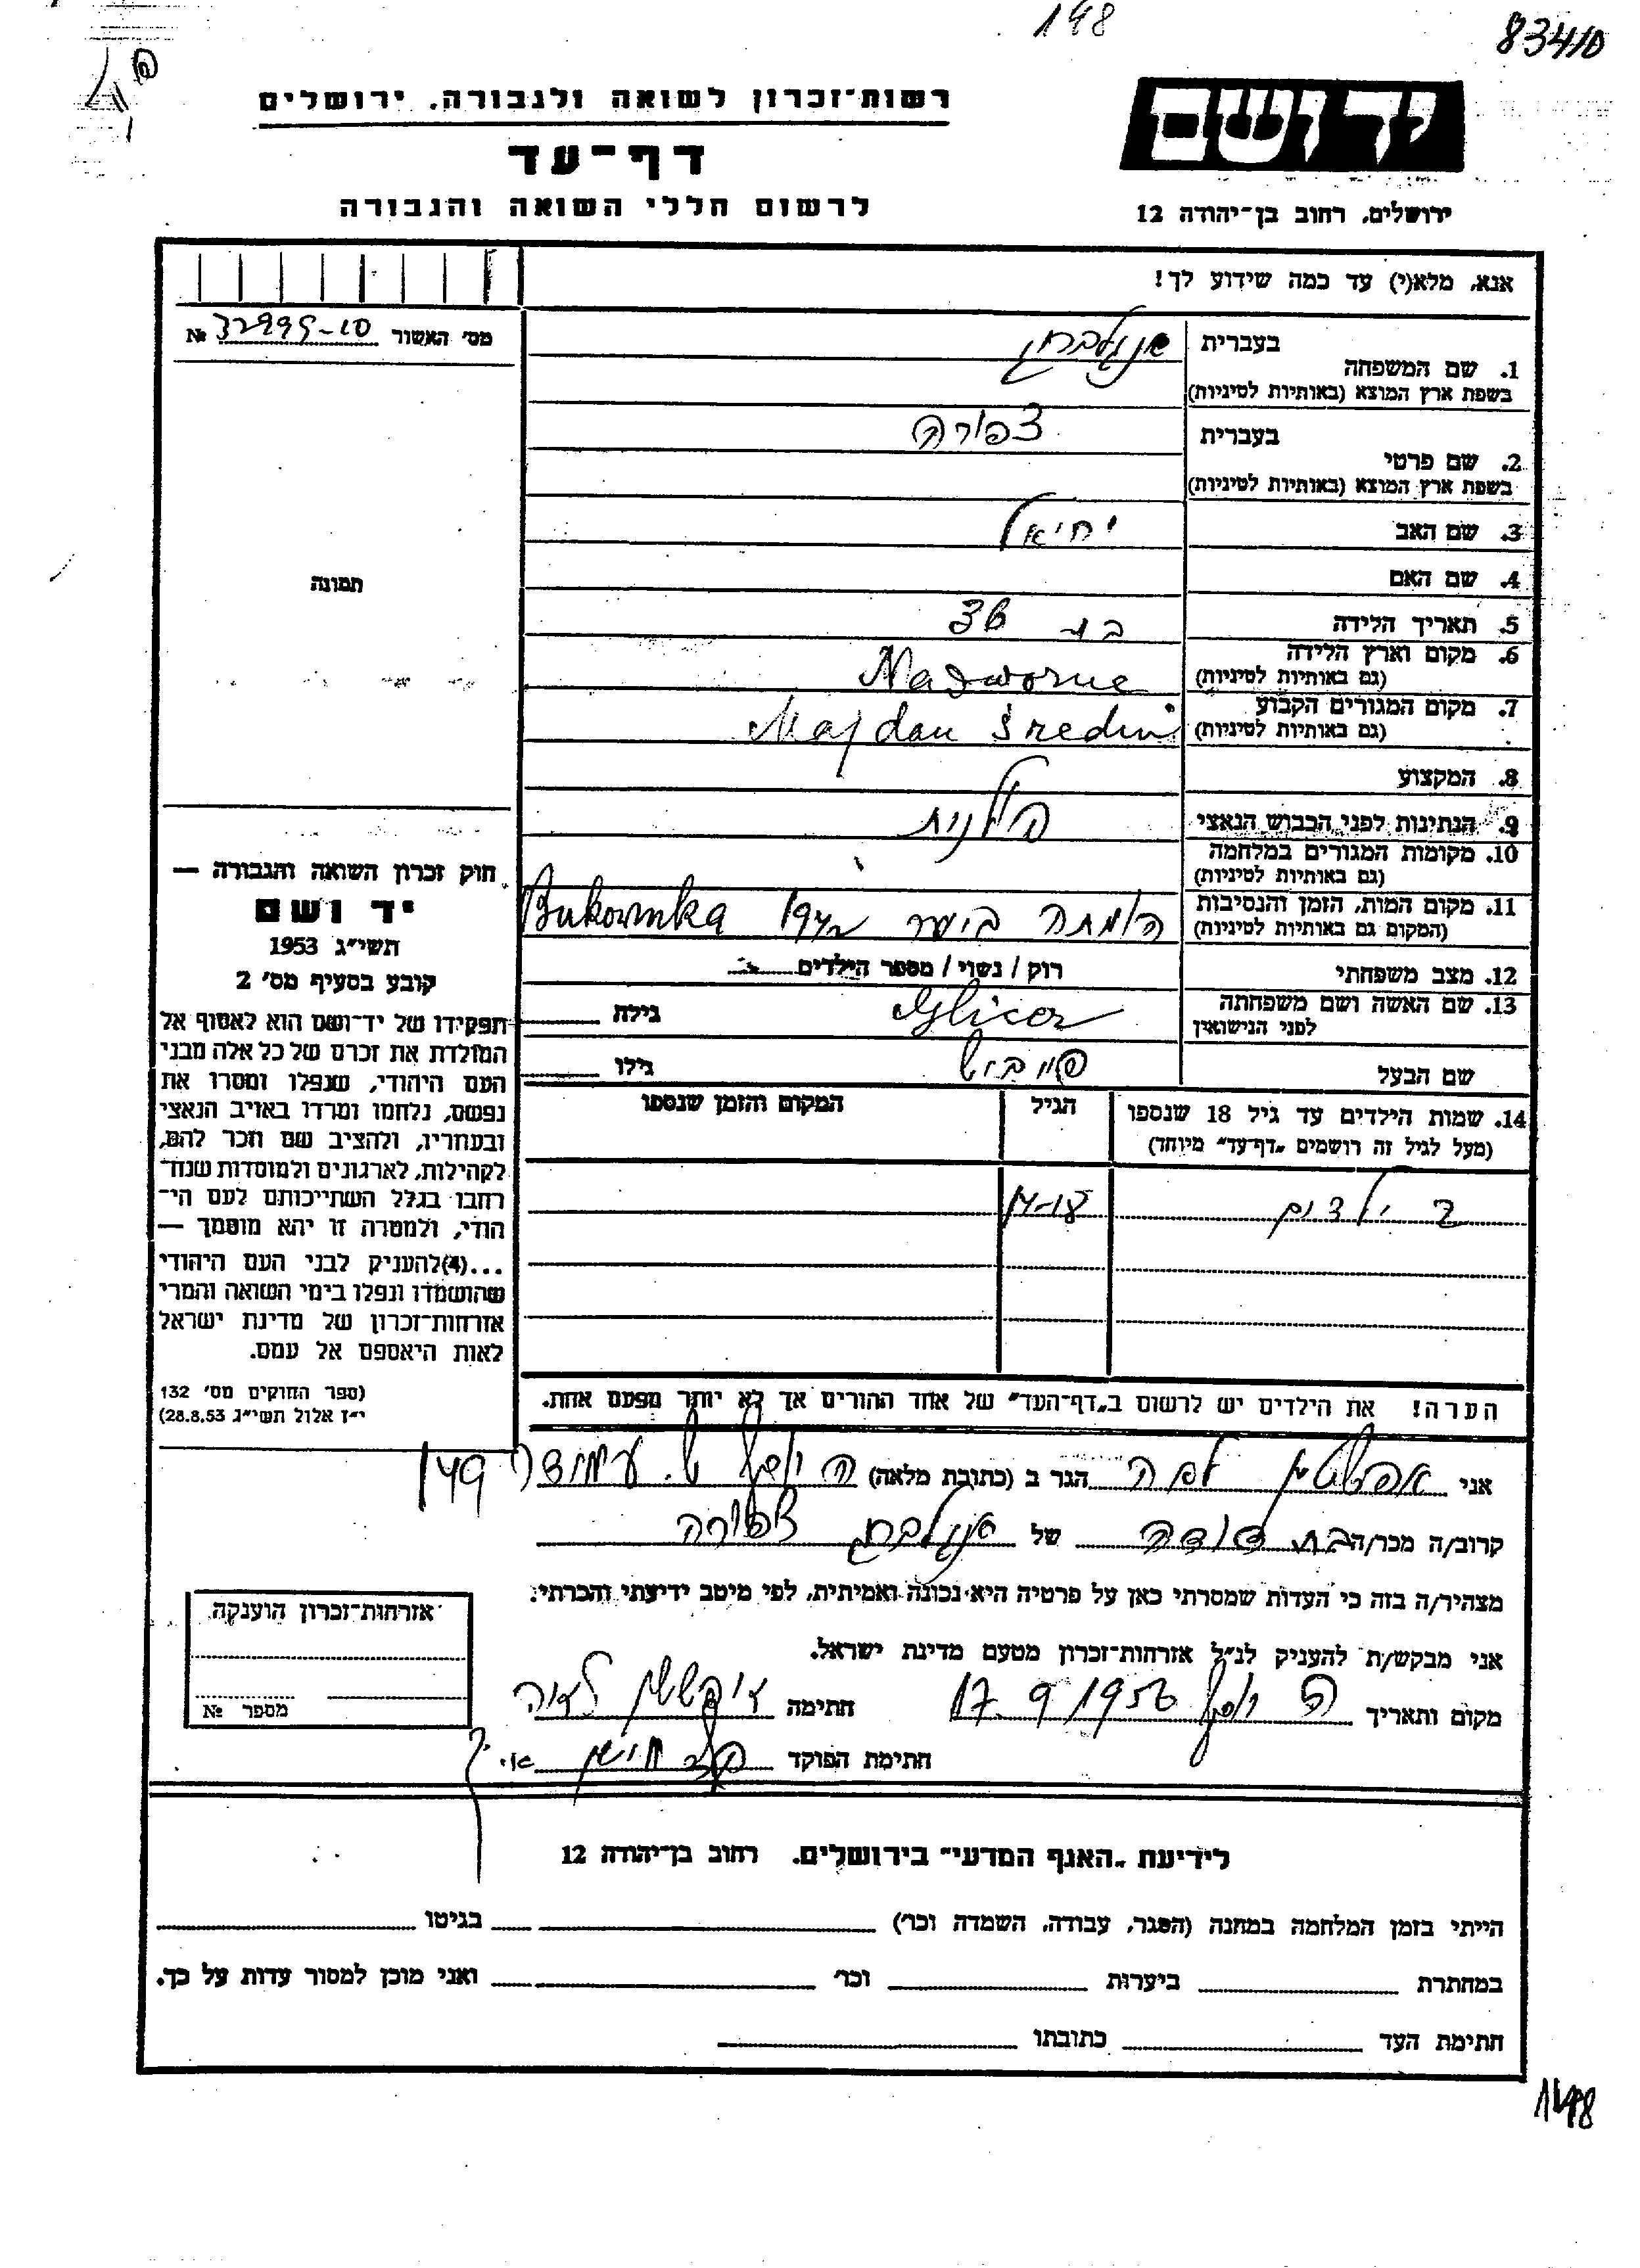 198
83410
יד ושם
רשות־זכרון לשואה ולגבורה. ירושלים
דף־עד
לרשום חללי השואה והגבורה
ירושלים, רחוב בן־יהודה 12
אנא, מלא(י) עד כמה שידוע לך!
מס׳ האשור № 32995-10
תמונה
1. שם המשפחה
בעברית
בשפת ארץ המוצא (באותיות לטיניות)
2. שם פרטי
בעברית צפורה
בשפת ארץ המוצא (באותיות לטיניות)
3. שם האב יחיאל
4. שם האם
5. תאריך הלידה בת 36
6. מקום וארץ הלידה Nadworne
(גם באותיות לטיניות)
7. מקום המגורים הקבוע Majdan Średni
(גם באותיות לטיניות)
8. המקצוע
9. הנתינות לפני הכבוש הנאצי פולנית
10. מקומות המגורים במלחמה
(גם באותיות לטיניות)
11. מקום המות, הזמן והנסיבות הומתה ביער 1942 Bukowinka
(המקום גם באותיות לטיניות)
12. מצב משפחתי רוק / נשוי / מספר הילדים
13. שם האשה ושם משפחתה Glicer גילה
לפני הנישואין
שם הבעל פייביש גילו
14. שמות הילדים עד גיל 18 שנספו הגיל המקום והזמן שנספו
(מעל לגיל זה רושמים „דף־עד״ מיוחד)
2 ילדים 14-18
הערה! את הילדים יש לרשום ב„דף־העד״ של אחד ההורים אך לא יותר מפעם אחת.
חוק זכרון השואה והגבורה —
יד ושם
תשי״ג 1953
קובע בסעיף מס׳ 2
תפקידו של יד־ושם הוא לאסוף אל
המולדת את זכרם של כל אלה מבני
העם היהודי, שנפלו ומסרו את
נפשם, נלחמו ומרדו באויב הנאצי
ובעוזריו, ולהציב שם וזכר להם,
לקהילות, לארגונים ולמוסדות שנח־
רחבו בגלל השתייכותם לעם הי־
הודי, ולמטרה זו יהא מוסמך —
...(4) להעניק לבני העם היהודי
שהושמדו ונפלו בימי השואה והמרי
אזרחות־זכרון של מדינת ישראל
לאות היאספם אל עמם.
(ספר החוקים מס׳ 132
י״ז אלול תשי״ג 28.8.53)
אני הגר ב (כתובת מלאה) 149
קרוב/ה מכר/ה בת דודה של צפורה
מצהיר/ה בזה כי העדות שמסרתי כאן על פרטיה היא נכונה ואמיתית, לפי מיטב ידיעתי והכרתי.
אני מבקש/ת להעניק לנ״ל אזרחות־זכרון מטעם מדינת ישראל.
מקום ותאריך 17.9.1956 חתימה
חתימת הפוקד
אזרחות־זכרון הוענקה
מספר №
לידיעת „האגף המדעי״ בירושלים. רחוב בן־יהודה 12
הייתי בזמן המלחמה במחנה (הסגר, עבודה, השמדה וכו׳) בגיטו
במחתרת ביערות וכו׳ ואני מוכן למסור עדות על כך.
חתימת העד כתובתו
1498